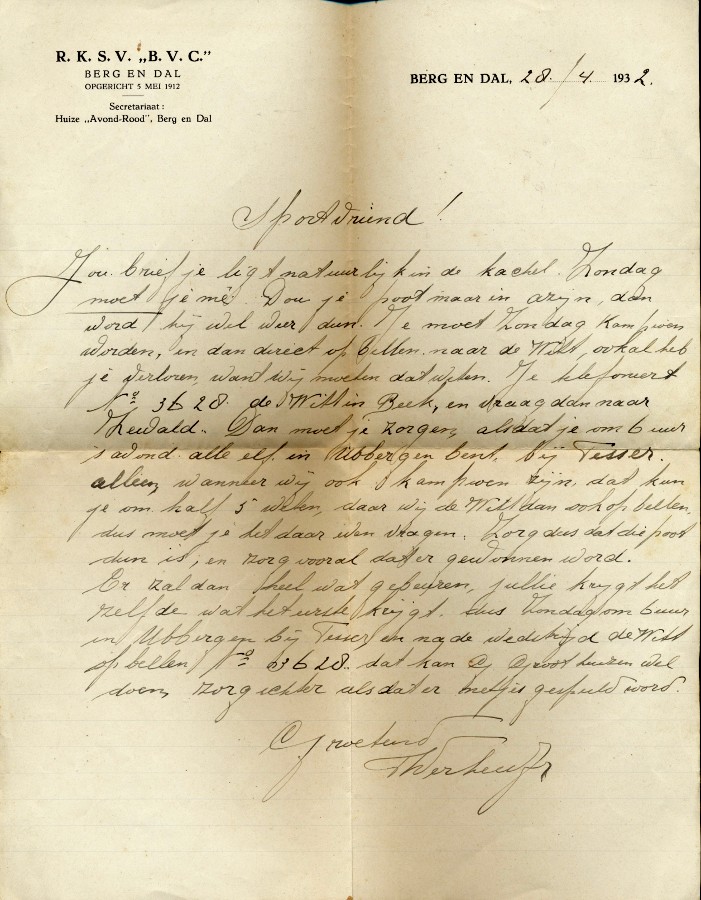 R. K. S. V. „B. V. C.”
BERG EN DAL
OPGERICHT 5 MEI 1912
Secretariaat :
Huize „Avond-Rood”, Berg en Dal
BERG EN DAL, 28/4. 1932.
Sportvriend!
Jou brief je ligt natuurlijk in de kachel. Zondag
moet je mê. Dou je poot maar in azyn, dan
word hij wel weer dun. Je moet Zondag Kampioen
worden, en dan direct op bellen naar de Witt, ook al heb
je verloren, want wij moeten dat weten. Je telefoneert
No 3628 de Witt in Beek, en vraag dan naar
Zewald. Dan moet je zorgen, als dat je om 6 uur
s'avond alle elf in Ubbergen bent, bij Tesser.
alleen, wanneer wij ook kampioen zijn, dat kun
je om half 5 weten, daar wij de Witt dan ook op bellen
dus moet je het daar even vragen. Zorg dus dat die poot
dun is, en zorg vooral dat er gewonnen word.
Er zal dan heel wat gebeuren, jullie krijgt het
zelfde wat het eerste krijgt. dus Zondag om 6 uur
in Ubbergen bij Tesser, en na de wedstrijd de Witt
op bellen No 3628. dat kan G. Groothuizen wel
doen, zorg echter als dat er netjes gespeeld word.
Groetend